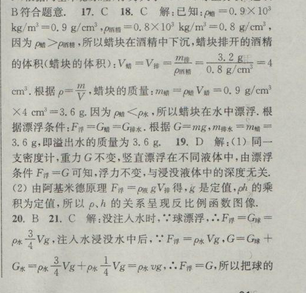 B符合题意. 17. C 18. C 解:已知:ρ蜡=0.9×10³
kg/m³=0.9 g/cm³,ρ酒精=0.8×10³ kg/m³=0.8 g/cm³,
因为ρ蜡>ρ酒精,所以蜡块在酒精中下沉,蜡块排开的酒精
的体积(蜡块的体积):V蜡=V排=m排/ρ酒精=3.2 g/0.8 g/cm³=4
cm³.根据ρ=m/V,蜡块的质量:m蜡=ρ蜡V蜡=0.9 g/cm³
×4 cm³=3.6 g.因为ρ蜡<ρ水,所以蜡块在水中漂浮.根
据漂浮条件:F浮=G蜡=G排水.根据G=mg,m排水=m蜡=
3.6 g,即溢出水的质量为3.6 g. 19. D 解:(1)同一
支密度计,重力G不变,竖直漂浮在不同液体中,由漂浮
条件F浮=G可知,浮力不变,与浸没液体中的深度无关.
(2)由阿基米德原理F浮=ρ液gV排得,g是定值,ρh的乘
积为定值,所以ρ、h的关系呈现反比例函数图像.
20. B 21. C 解:没注入水时,∵球漂浮,∴F浮=G球=
ρ水3/4Vg,注入水浸没水中后,∵F浮=ρ水Vg,G=G球+
G水=ρ水3/4Vg+ρ水1/4Vg=ρ水vg,∴F浮=G,所以把球的